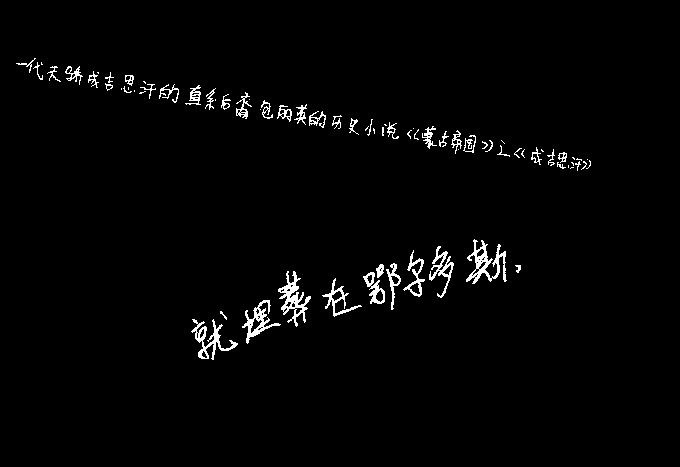 一代天骄成吉思汗的直系后裔包丽英的历史小说《蒙古帝国》之《成吉思汗》
就埋葬在鄂尔多斯.